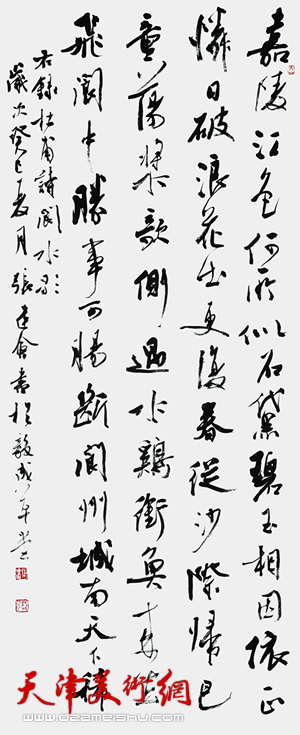 嘉陵江色何所似石黛碧玉相因依正
憐日破浪花出更復春從沙際歸巴
童蕩槳欹側過水鷄銜魚來去
飛閬中勝事可腸斷閬州城南天下稀
右錄杜甫詩閬水歌
歲次癸巳夏月張建會書於
天津美術網
www.ozemeishu.com